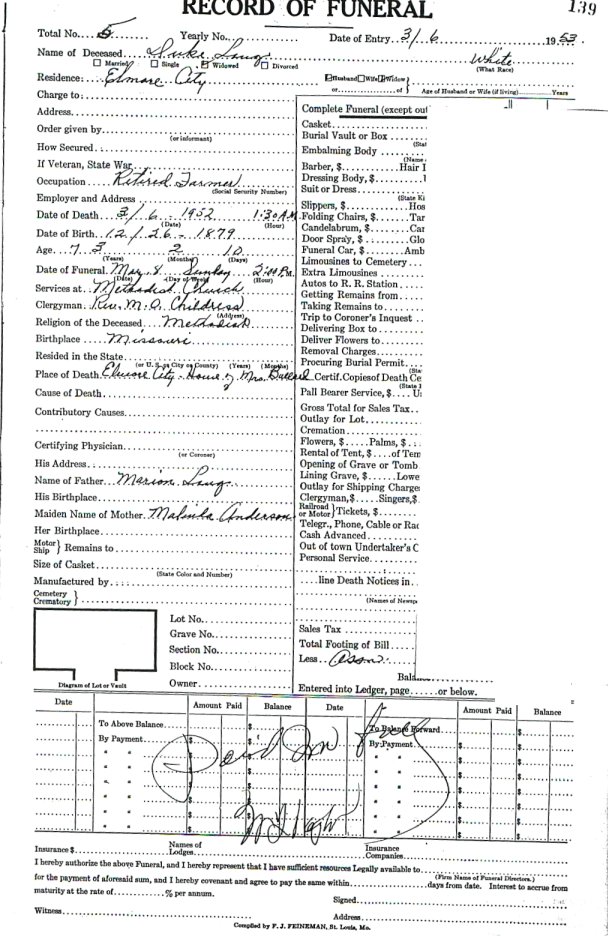 RECORD OF FUNERAL 139
Total No. 5 Yearly No. Date of Entry 3/6 1953
Name of Deceased Luke Long White
Married Single Widowed Divorced (What Race)
Residence: Elmore City Husband Wife Widow
or of Age of Husband or Wife (if living) Years
Charge to:
Address
Order given by
(or informant)
How Secured
If Veteran, State War
Occupation Retired Farmer
(Social Security Number)
Employer and Address
Date of Death 3/6 - 1952 1:30 A.M.
(Date) (Hour)
Date of Birth 12/26 - 1879
Age 73 2 10
(Years) (Months) (Days)
Date of Funeral Mar 8 Sunday 2:00 P.M.
(Date) (Day of Week) (Hour)
Services at Methodist Church
Clergyman Rev. M. O. Childress
(Address)
Religion of the Deceased Methodist
Birthplace Missouri
Resided in the State
(or U. S. or City or County) (Years) (Months)
Place of Death Elmore City - House of Mrs. Ballard
Cause of Death
Contributory Causes
Certifying Physician
(or Coroner)
His Address
Name of Father Marion Long
His Birthplace
Maiden Name of Mother Malinda Anderson
Her Birthplace
Motor Ship } Remains to
Size of Casket
(State Color and Number)
Manufactured by
Cemetery Crematory }
Lot No.
Grave No.
Section No.
Block No.
Owner
Diagram of Lot or Vault
Complete Funeral (except out
Casket
Burial Vault or Box
(Stat
Embalming Body
(Name
Barber, $ Hair
Dressing Body, $
Suit or Dress
(State Ki
Slippers, $ Hos
Folding Chairs, $ Tar
Candelabrum, $ Car
Door Spray, $ Glo
Funeral Car, $ Amb
Limousines to Cemetery
Extra Limousines
Autos to R. R. Station
Getting Remains from
Taking Remains to
Trip to Coroner's Inquest
Delivering Box to
Deliver Flowers to
Removal Charges
Procuring Burial Permit
(Sta
Certif. Copies of Death Ce
(State
Pall Bearer Service, $ U
Gross Total for Sales Tax
Outlay for Lot
Cremation
Flowers, $ Palms, $
Rental of Tent, $ of Tem
Opening of Grave or Tomb
Lining Grave, $ Lowe
Outlay for Shipping Charge
Clergyman, $ Singers, $
Railroad or Motor } Tickets, $
Telegr., Phone, Cable or Rad
Cash Advanced
Out of town Undertaker's C
Personal Service
line Death Notices in
(Names of Newsp
Sales Tax
Total Footing of Bill
Less
Bala
Entered into Ledger, page or below.
Date Amount Paid Balance Date Amount Paid Balance
To Above Balance $ To Balance Forward $
By Payment $ By Payment $
Paid In full
Insurance $ Names of Lodges Insurance Companies
I hereby authorize the above Funeral, and I hereby represent that I have sufficient resources Legally available to
(Firm Name of Funeral Directors.)
for the payment of aforesaid sum, and I hereby covenant and agree to pay the same within days from date. Interest to accrue from
maturity at the rate of % per annum.
Signed
Witness Address
Compiled by F. J. FEINEMAN, St. Louis, Mo.